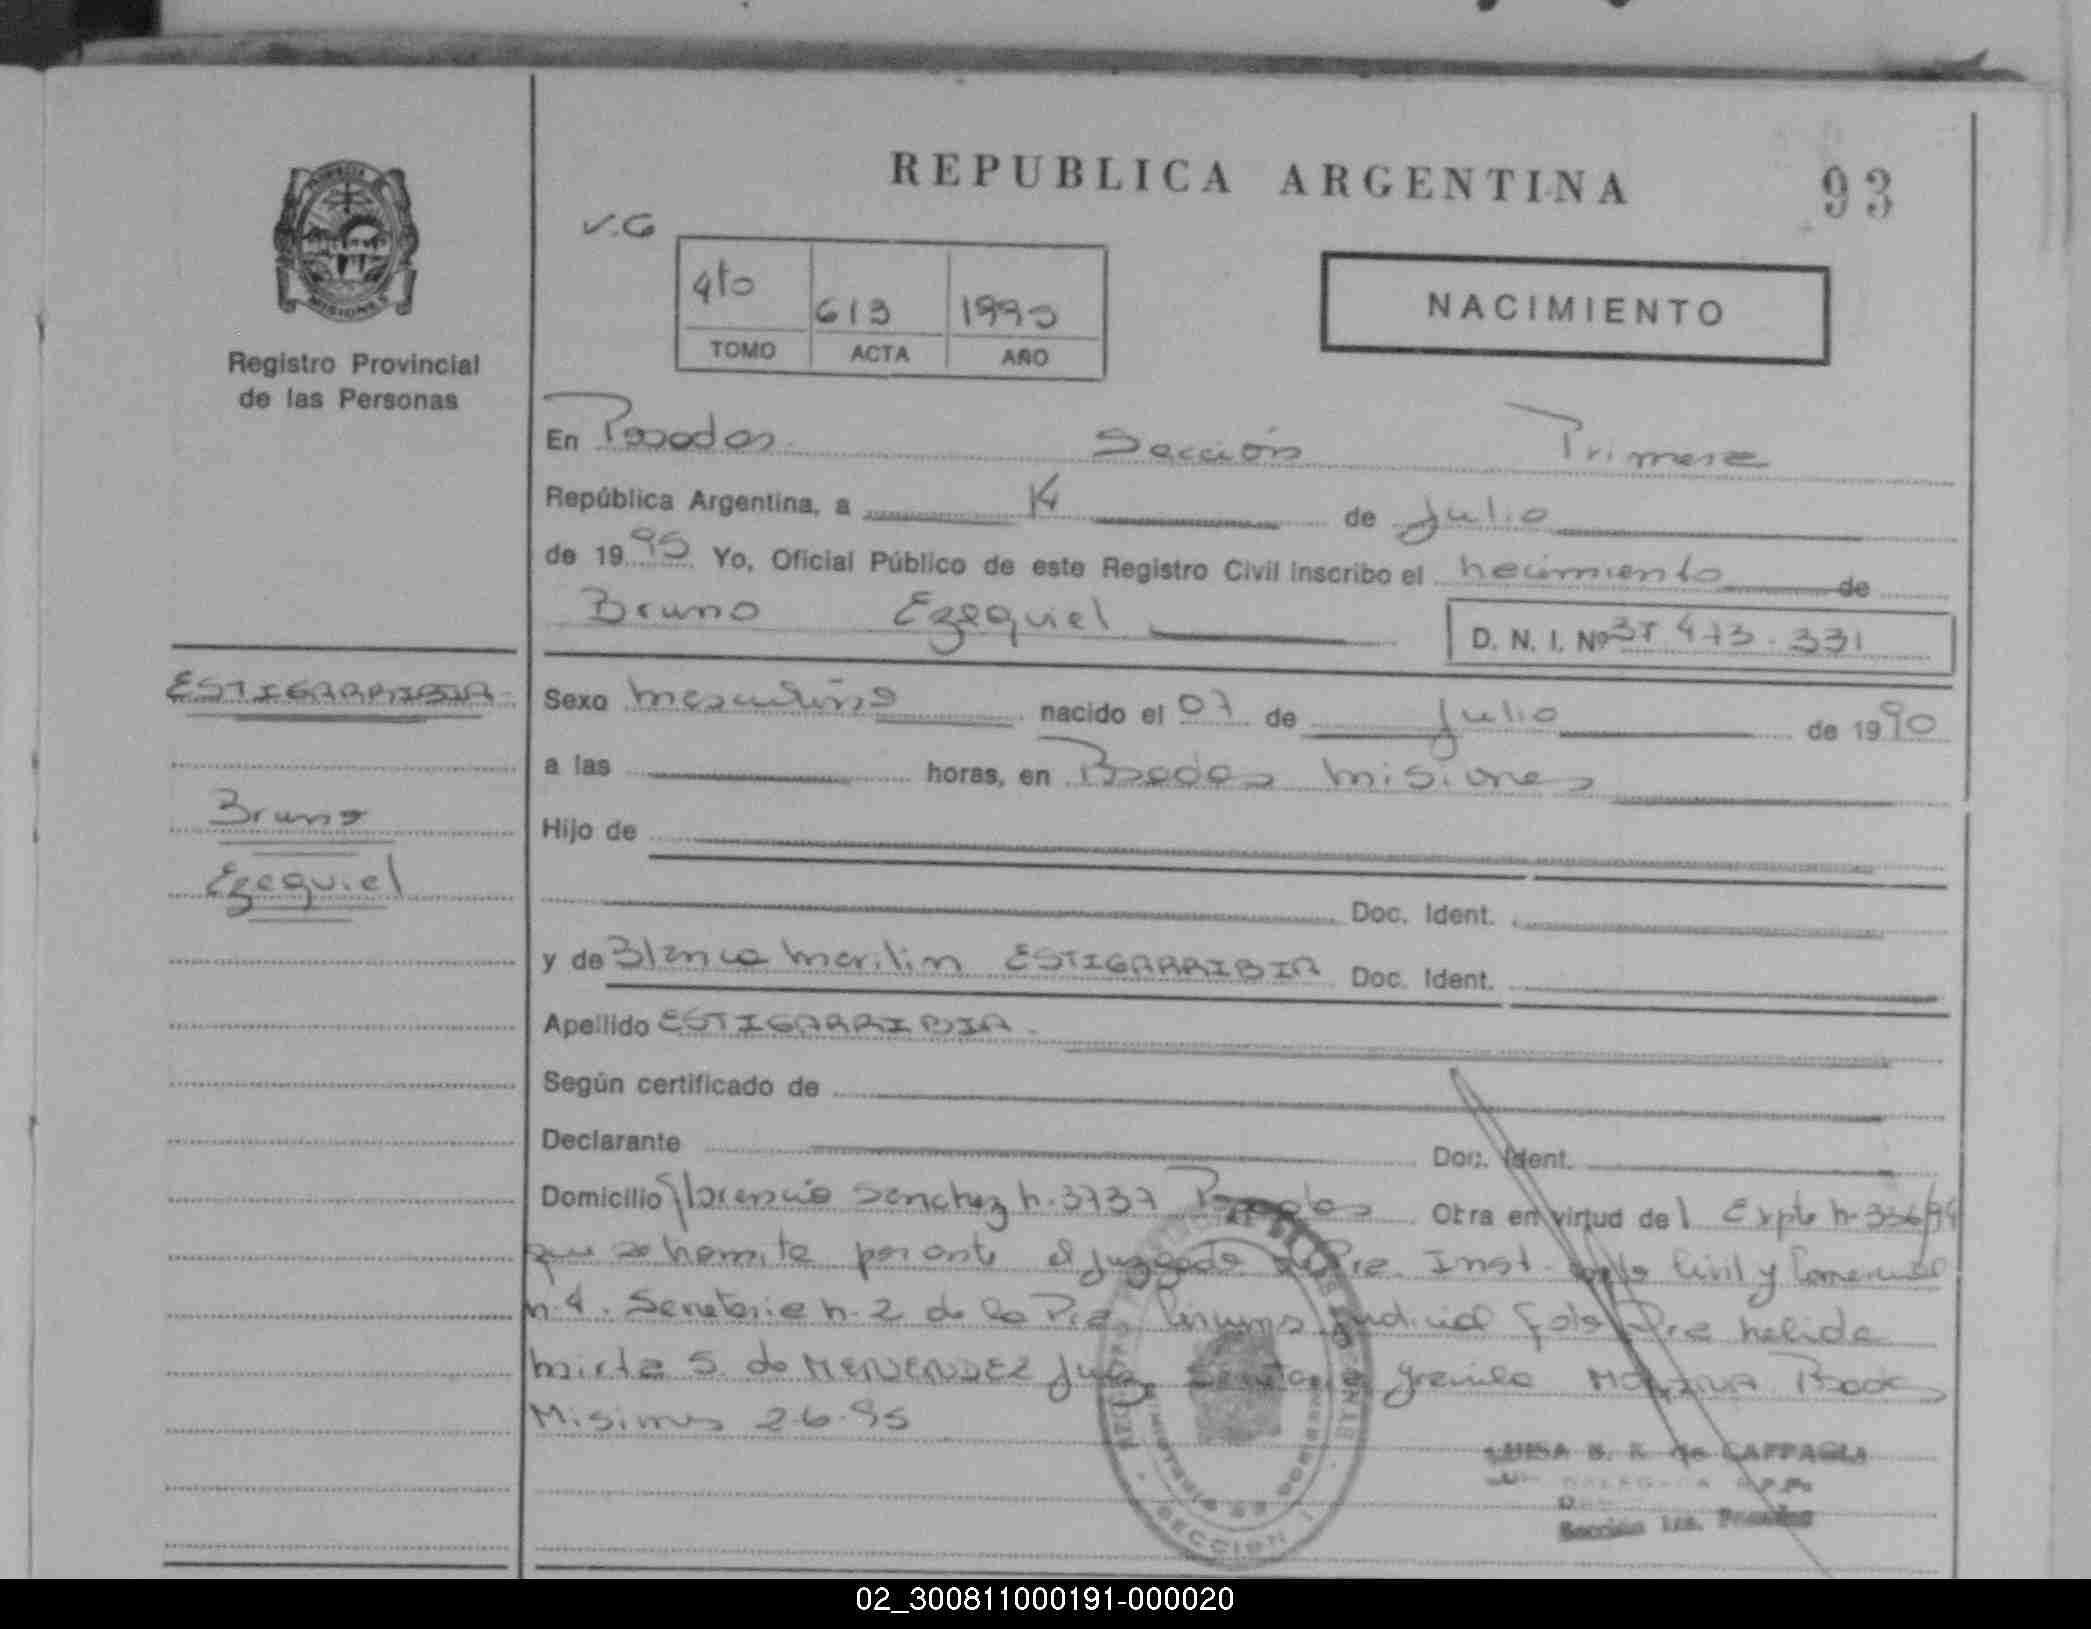 REPUBLICA ARGENTINA
93
V.G
4to 613 1990
TOMO ACTA AÑO
NACIMIENTO
PROVINCIA DE MISIONES
Registro Provincial
de las Personas
En Posadas Sección Primera
República Argentina, a 14 de Julio
de 1995 Yo, Oficial Público de este Registro Civil inscribo el nacimiento de
Bruno Ezequiel
D. N. I. Nº 413.331
ESTIGARRIBIA
Bruno
Ezequiel
Sexo masculino nacido el 07 de Julio de 1990
a las horas, en Posadas Misiones
Hijo de
Doc. Ident.
y de Blanca Marilin ESTIGARRIBIA Doc. Ident.
Apellido ESTIGARRIBIA
Según certificado de
Declarante Doc. Ident.
Domicilio Florencio Sanchez n. 3737 Posadas Otra en virtud del Expte n. 336/94
que se tramita por ante el Juzgado de Pra. Inst. en lo Civil y Comercial
n. 4. Secretaria n. 2 de la Pra. Judicial Dra Nelida
Mirta S. de MENENDEZ Juez Secretaria Graciela Posadas
Misiones 2.6.95
LUISA B. R. de CAPPAGLI
Sección 1ra. Posadas
SECCION 1
02_300811000191-000020